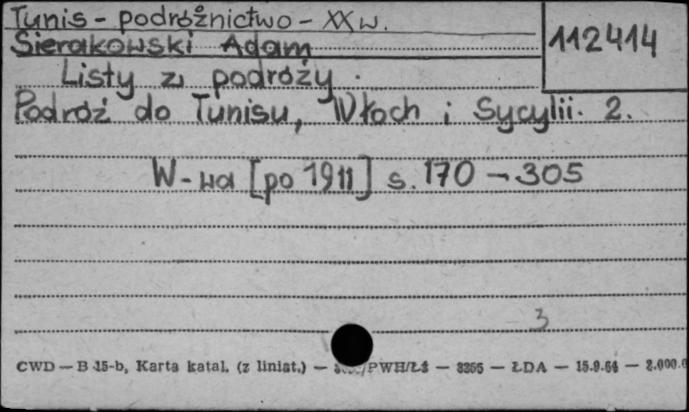 Tunis - podróżnictwo - XX w.
112414
Sierakowski Adam
Listy z podróży.
Podróż do Tunisu, Włoch i Sycylii. 2.
W-wa [po 1911] s. 170 - 305
3
CWD — B 15-b, Karta katal. (z liniat.) — /PWH/Łź — 3355 — ŁDA — 15.9.64 — 2.000.0